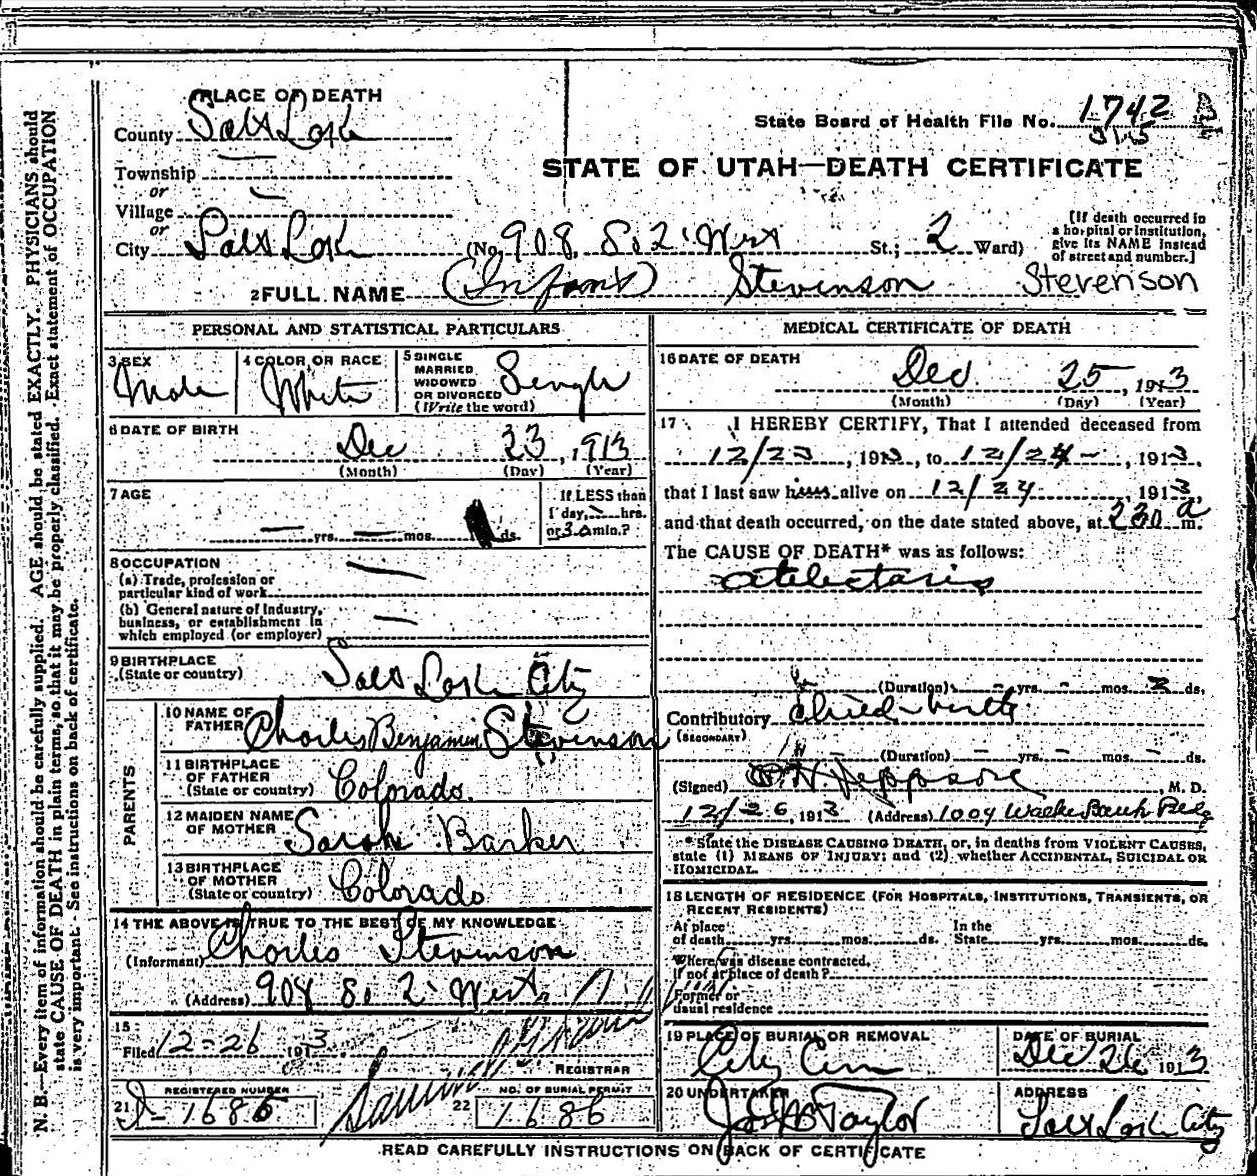 PLACE OF DEATH
County Salt Lake
State Board of Health File No. 1742
315
STATE OF UTAH—DEATH CERTIFICATE
Township
or
Village
or
City Salt Lake (No. 908 So 2 West St.; 2 Ward)
[If death occurred in a hospital or institution, give its NAME instead of street and number.]
2 FULL NAME (Infant) Stevenson Stevenson
PERSONAL AND STATISTICAL PARTICULARS
3 SEX Male
4 COLOR OR RACE White
5 SINGLE MARRIED, WIDOWED OR DIVORCED (Write the word) Single
6 DATE OF BIRTH Dec 23, 1913
(Month) (Day) (Year)
7 AGE — yrs. — mos. ds.
If LESS than 1 day, — hrs. or 30 min.?
8 OCCUPATION
(a) Trade, profession or particular kind of work —
(b) General nature of Industry, business, or establishment in which employed (or employer) —
9 BIRTHPLACE (State or country) Salt Lake City
PARENTS
10 NAME OF FATHER Charles Benjamin Stevenson
11 BIRTHPLACE OF FATHER (State or country) Colorado.
12 MAIDEN NAME OF MOTHER Sarah Barker
13 BIRTHPLACE OF MOTHER (State or country) Colorado
14 THE ABOVE IS TRUE TO THE BEST OF MY KNOWLEDGE
(Informant) Charles Stevenson
(Address) 908 So 2 West
15
Filed 12-26 1913.
REGISTRAR
REGISTERED NUMBER
21 1686
NO. OF BURIAL PERMIT
22 1686
MEDICAL CERTIFICATE OF DEATH
16 DATE OF DEATH Dec 25, 1913
(Month) (Day) (Year)
17 I HEREBY CERTIFY, That I attended deceased from
12/23, 1913, to 12/24, 1913,
that I last saw him alive on 12/24, 1913,
and that death occurred, on the date stated above, at 230 a m.
The CAUSE OF DEATH* was as follows:
atelectasis
(Duration) - yrs. - mos. 2 ds.
Contributory Child-birth
(SECONDARY)
(Duration) — yrs. — mos. — ds.
(Signed) Jeppson, M. D.
12/26, 1913 (Address) 1009 Walker Bank Bldg
*State the DISEASE CAUSING DEATH, or, in deaths from VIOLENT CAUSES, state (1) MEANS OF INJURY; and (2) whether ACCIDENTAL, SUICIDAL OR HOMICIDAL.
18 LENGTH OF RESIDENCE (FOR HOSPITALS, INSTITUTIONS, TRANSIENTS, OR RECENT RESIDENTS)
At place of death yrs. mos. ds. In the State yrs. mos. ds.
Where was disease contracted, If not at place of death?
Former or usual residence
19 PLACE OF BURIAL OR REMOVAL City Cem
DATE OF BURIAL Dec 26 1913
20 UNDERTAKER Jos Wm Taylor
ADDRESS Salt Lake City
READ CAREFULLY INSTRUCTIONS ON BACK OF CERTIFICATE
N. B.—Every item of information should be carefully supplied. AGE should be stated EXACTLY. PHYSICIANS should
state CAUSE OF DEATH in plain terms, so that it may be properly classified. Exact statement of OCCUPATION
is very important. See instructions on back of certificate.